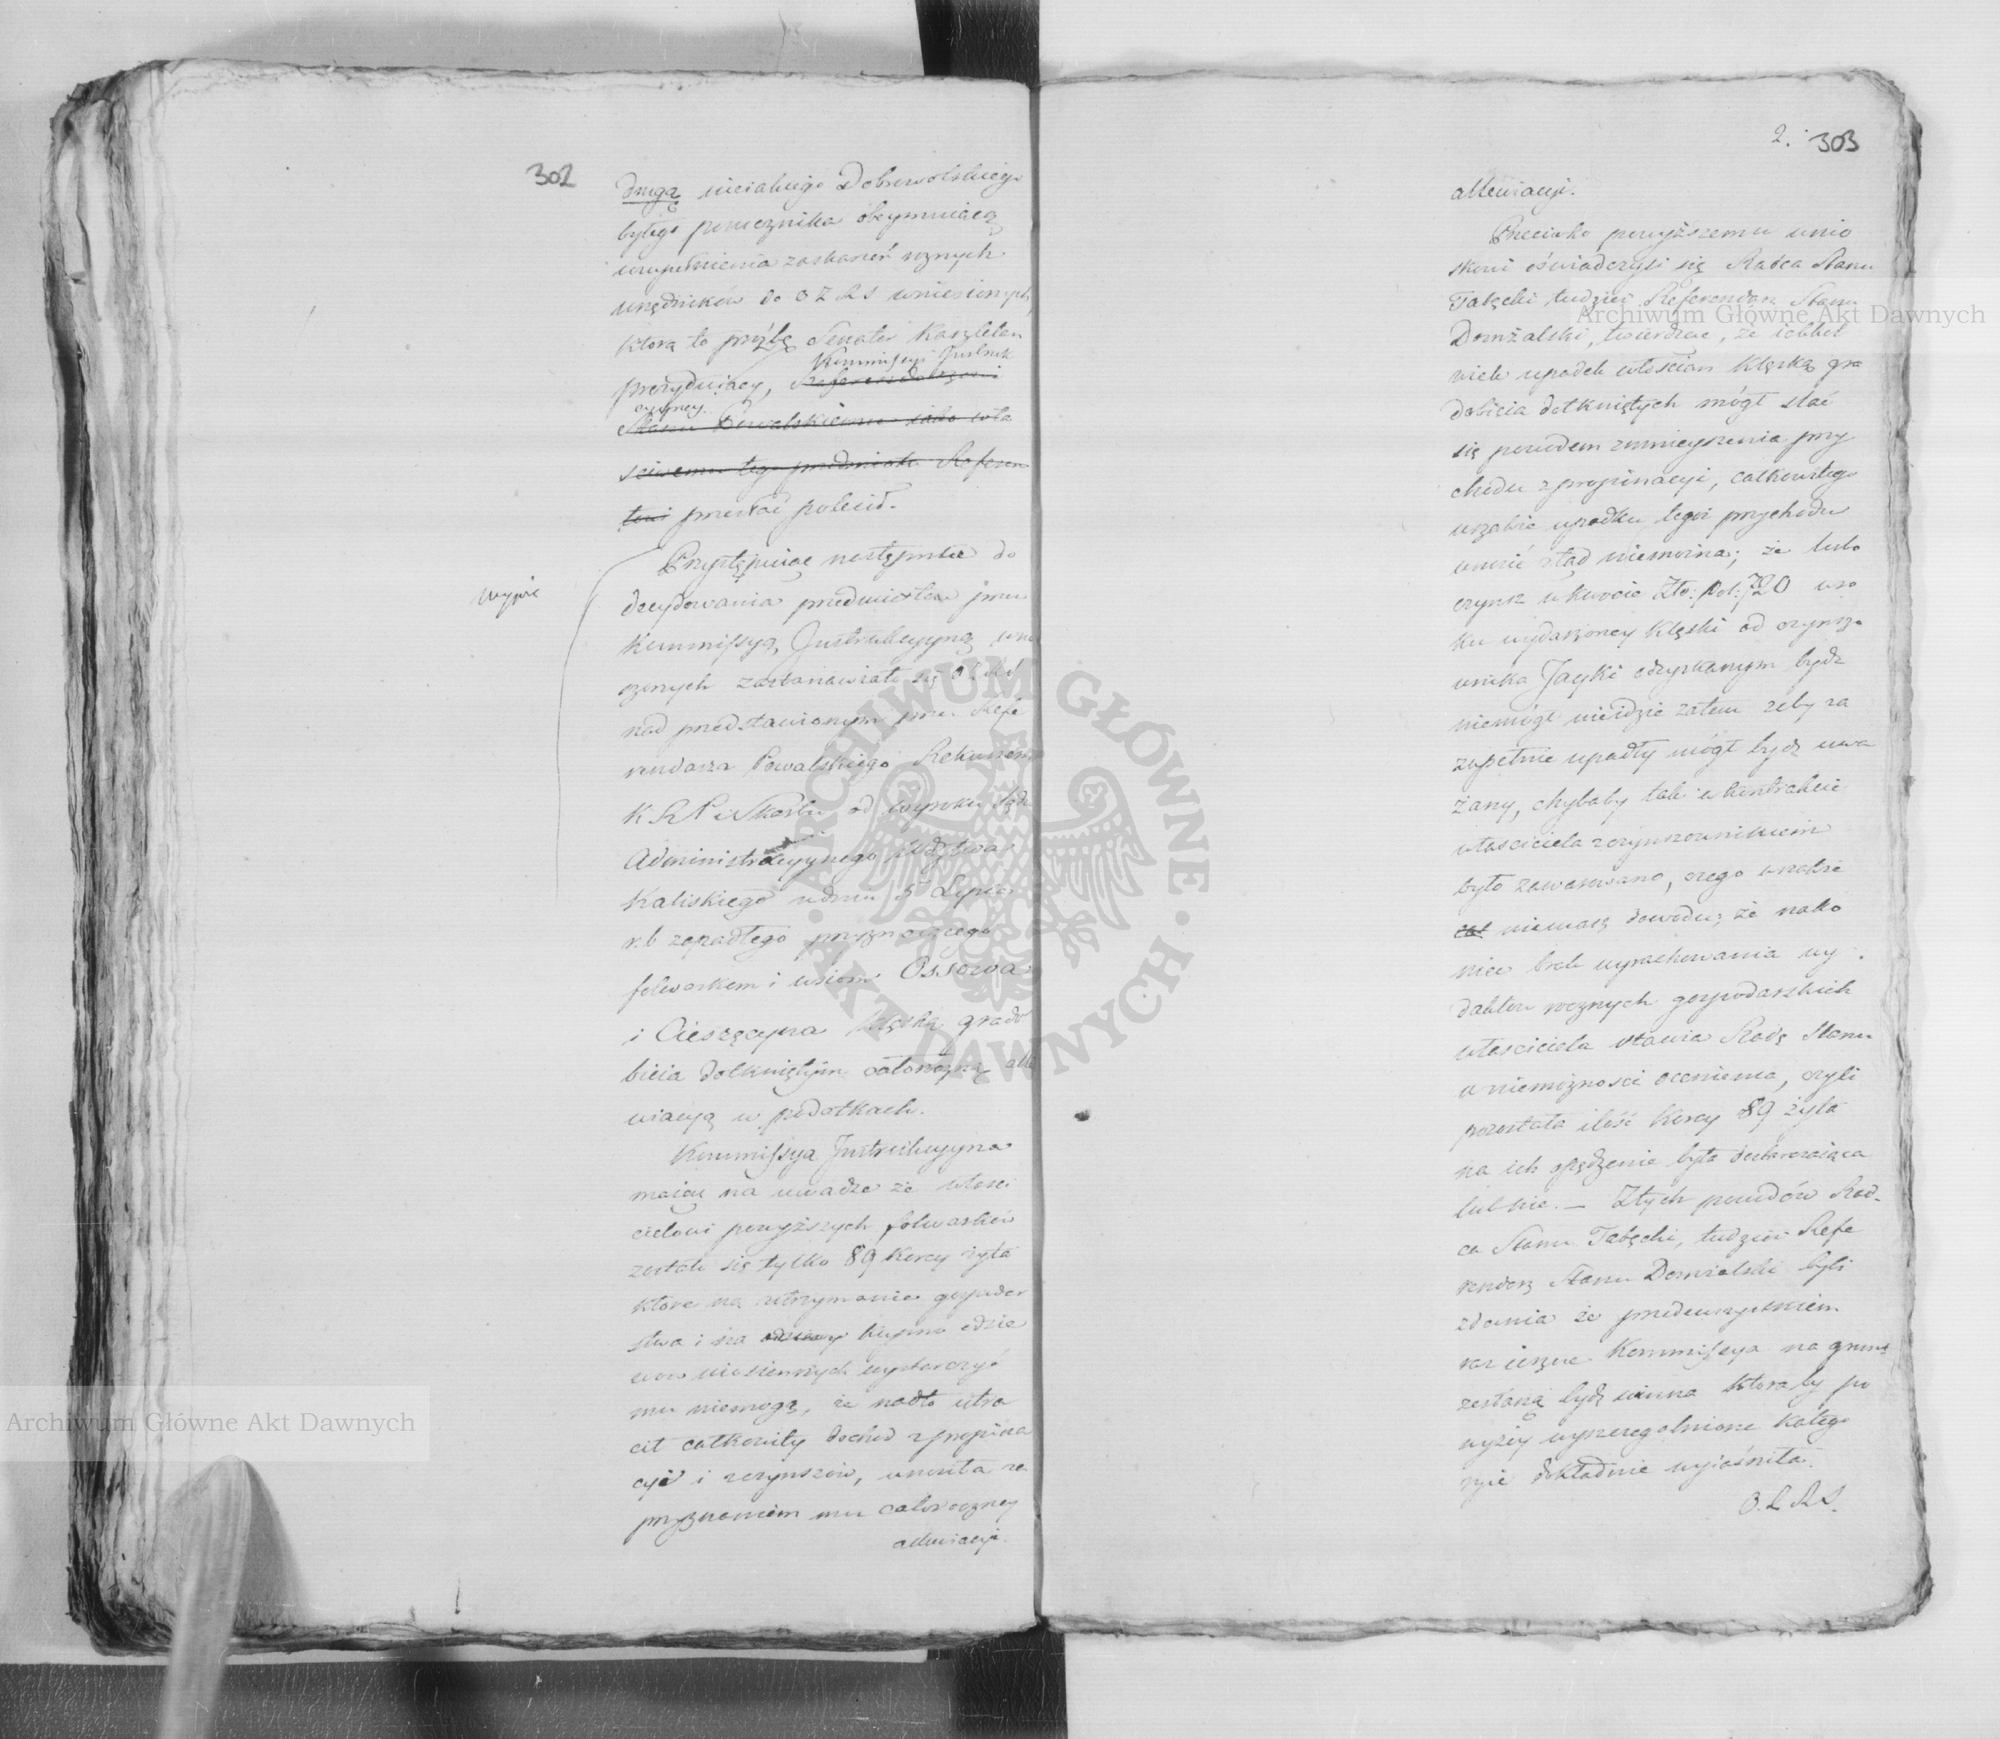 302
drugą nieiakiego Dobrowolskiego
byłego porucznika obeymuiącą
uzupełnienia zaskarżeń roznych
urzędników do O Z R S wniesionych,
ktorą to prozbę Senator Kasztelan
Kommissyi Instruk
prezyduiący, Referendarzowi
cyiney
Stanu Powalskiemu iako wła
sciwemu tego przedmiotu Referen
towi przesłać polecił.
Przystępuiąc następnie do
wypis
decydowania przedmiotow przez
Kommissyą Instrukcyyną wnie
sionych zastanawiało się O Z R S
nad przedstawionym przez Refe
rendarza Powalskiego Rekursem
K R P i Skarbu od wyroku Sądu
Administracyynego Wdztwa
Kaliskiego w dniu 5 Lipca
r. b. zapadłego przyznaiącego
folwarkom i wsiom Ossowa
i Cieszęcyna klęską grado
bicia dotkniętym całoroczną alle
wiacyą w podatkach.
Kommissya Instrukcyyna
maiąc na uwadze że własci
cielowi powyższych folwarków
zostało się tylko 89 korcy żyta
ktore na utrzymanie gospodar
stwa i na kupno odzie
wow wiosiennych wystarczyć
mu niemogą, że nadto utra
cił całkowity dochod z propina
cyi i czynszów, wnosiła za
przyznaniem mu całoroczney
allewiacyi.
2. 303
allewiacyi.
Przeciwko powyższemu wnio
skowi oświadczyli się Radca Stanu
Tabęcki tudzież Referendarz Stanu
Domżalski, twierdząc, że iakkol
wiek upadek włoscian klęską gra
dobicia dotkniętych mógł stać
się powodem zmnieyszenia przy
chodu z propinacyi, całkowitego
wszakże upadku tegoż przychodu
wnosić ztąd niemożna; że lubo
czynsz w kwocie Złto: Pol: 720 w sko
tku wydarzoney klęski od czynszo
wnika Jayki odzyskanym bydz
niemógł nieidzie zatem żeby za
zupełnie upadły mógł bydz uwa
żany, chybaby tak w kontrakcie
własciciela z czynszownikiem
było zawarowano, czego wszakże
niemasz dowodu; że nako
niec brak wyrachowania wy
datkow rocznych gospodarskich
własciciela stawia Radę Stanu
w niemożnosci ocenienia, czyli
pozostała ilość korcy 89 żyta
na ich opędzenie była dostarczaiąca
lub nie. — Z tych powodów Rad-
ca Stanu Tabęcki, tudzież Refe
rendarz Stanu Domżalski byli
zdania że przedewszystkiem
raz ieszcze Kommissya na grunt
zesłaną bydz winna ktoraby po
wyżey wyszczegolnione katego
rye dokładnie wyiaśniła.
O. Z. R S.
Archiwum Główne Akt Dawnych
Archiwum Główne Akt Dawnych
ARCHIWUM GŁÓWNE
AKT DAWNYCH